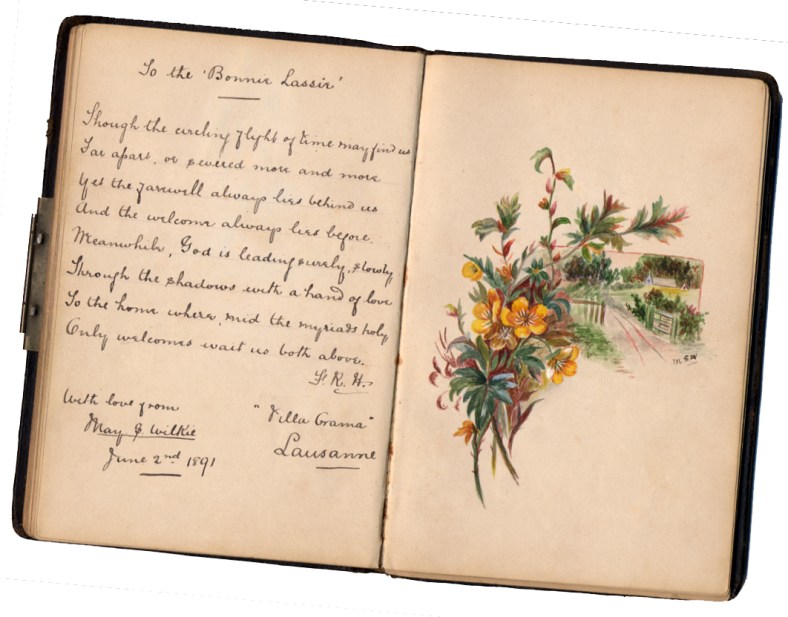 To the 'Bonnie Lassie'
Though the circling flight of time may find us
Far apart, or severed more and more
Yet the farewell always lies behind us
And the welcome always lies before.
Meanwhile, God is leading surely, slowly
Through the shadows with a hand of love
To the home where, mid the myriads holy
Only welcomes wait us both above.
F. R. H.
With love from
May G. Wilkie
June 2nd 1891
"Villa Grama"
Lausanne
M G W